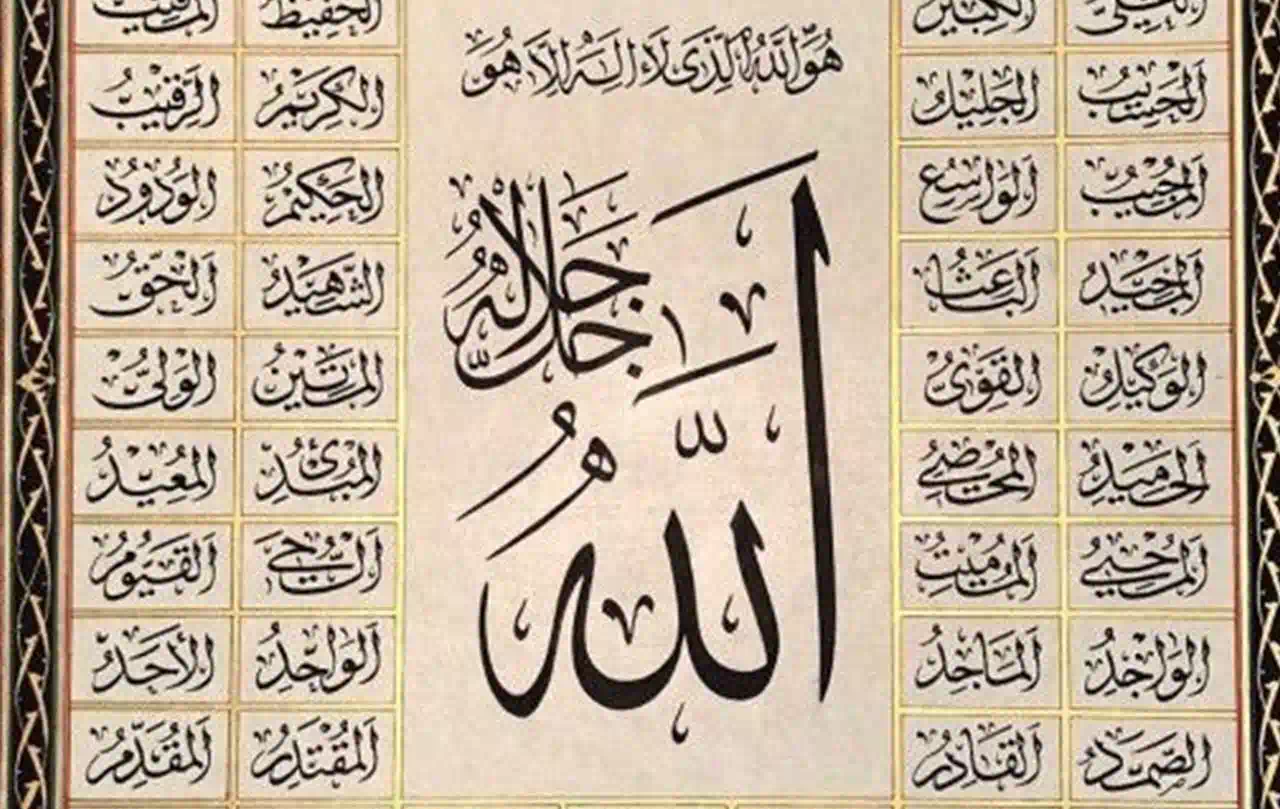 العلي الكبير الحفيظ المقيت
هُوَ اللّٰهُ الَّذي لَا اِلٰهَ اِلَّا هُوَ
الحَسِيبُ الجَلِيلُ الكَرِيمُ الرَّقِيبُ
المُجِيبُ الوَاسِعُ الحَكِيمُ الوَدُودُ
المَجِيدُ البَاعِثُ الشَّهِيدُ الحَقُّ
الوَكِيلُ القَوِيُّ المَتِينُ الوَلِيُّ
الحَمِيدُ المُحْصِي المُبْدِئُ المُعِيدُ
المُحْيِي المُمِيتُ الحَيُّ القَيُّومُ
الوَاجِدُ المَاجِدُ الوَاحِدُ الأَحَدُ
الصَّمَدُ القَادِرُ المُقْتَدِرُ المُقَدِّمُ
اللّٰهُ
جَلَّ جَلَالُهُ